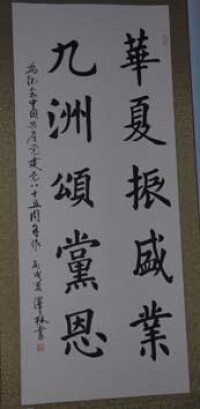 華夏振盛業
九洲頌黨恩
為紀念中國共產党建党八十五周年作 丙戌夏 澤林書